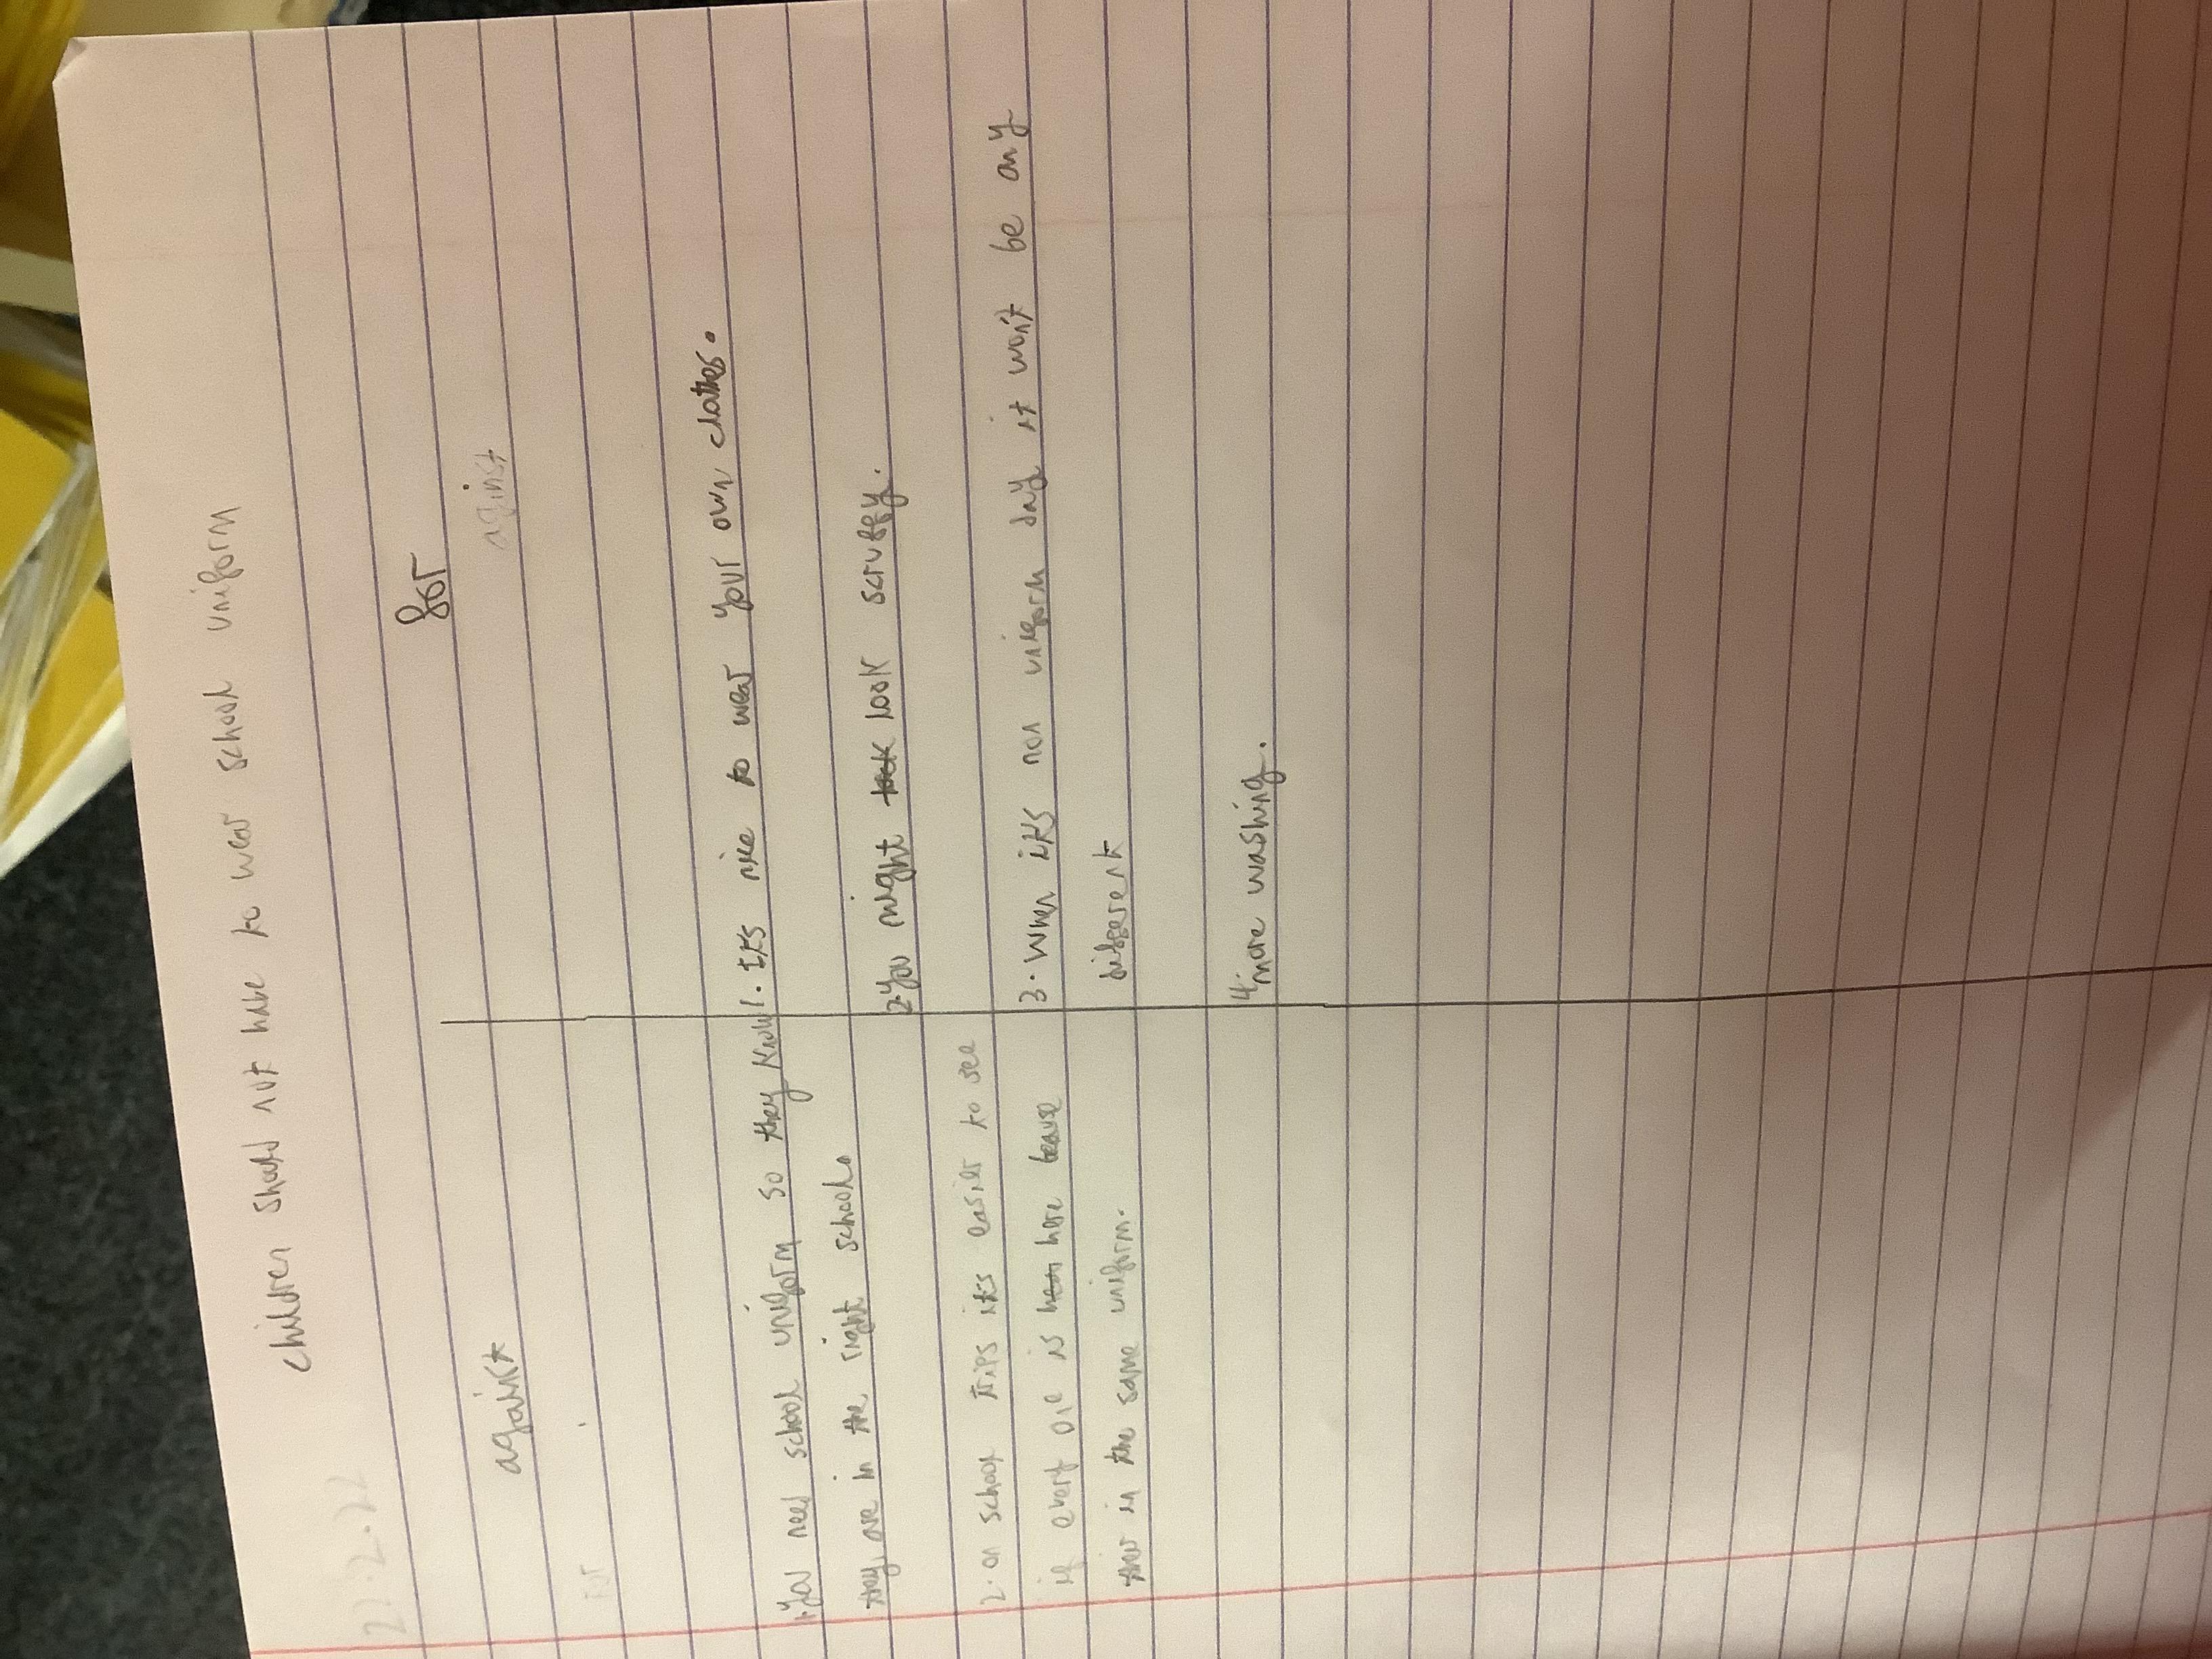 children should not have to wear school uniform
against
for
against
for
1.You need school uniform so they know
they are in the right school.
2. on school trips it's easier to see
if every one is here beause
ther in the same uniform.
1. It's nice to wear your own clothes.
2.You might look scruffy.
3. When it's non uniform day it won't be any
different
4.more washing.